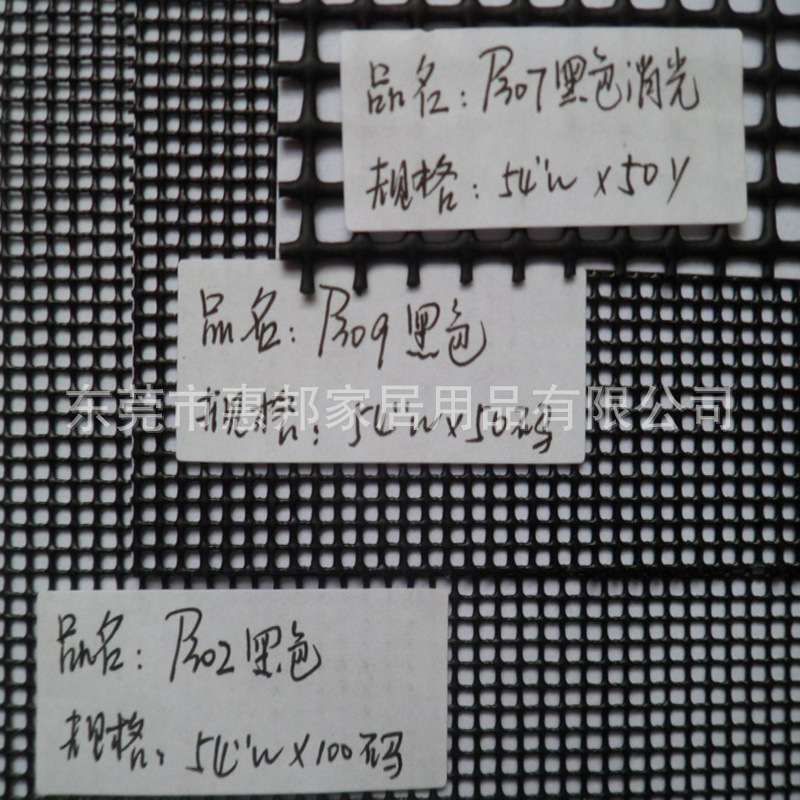 品名：B07黑色消光
规格：54"W×50Y
品名：B09黑色
规格：54"W×50码
东莞市惠邦家居用品有限公司
品名：B02黑色
规格：54"W×100码